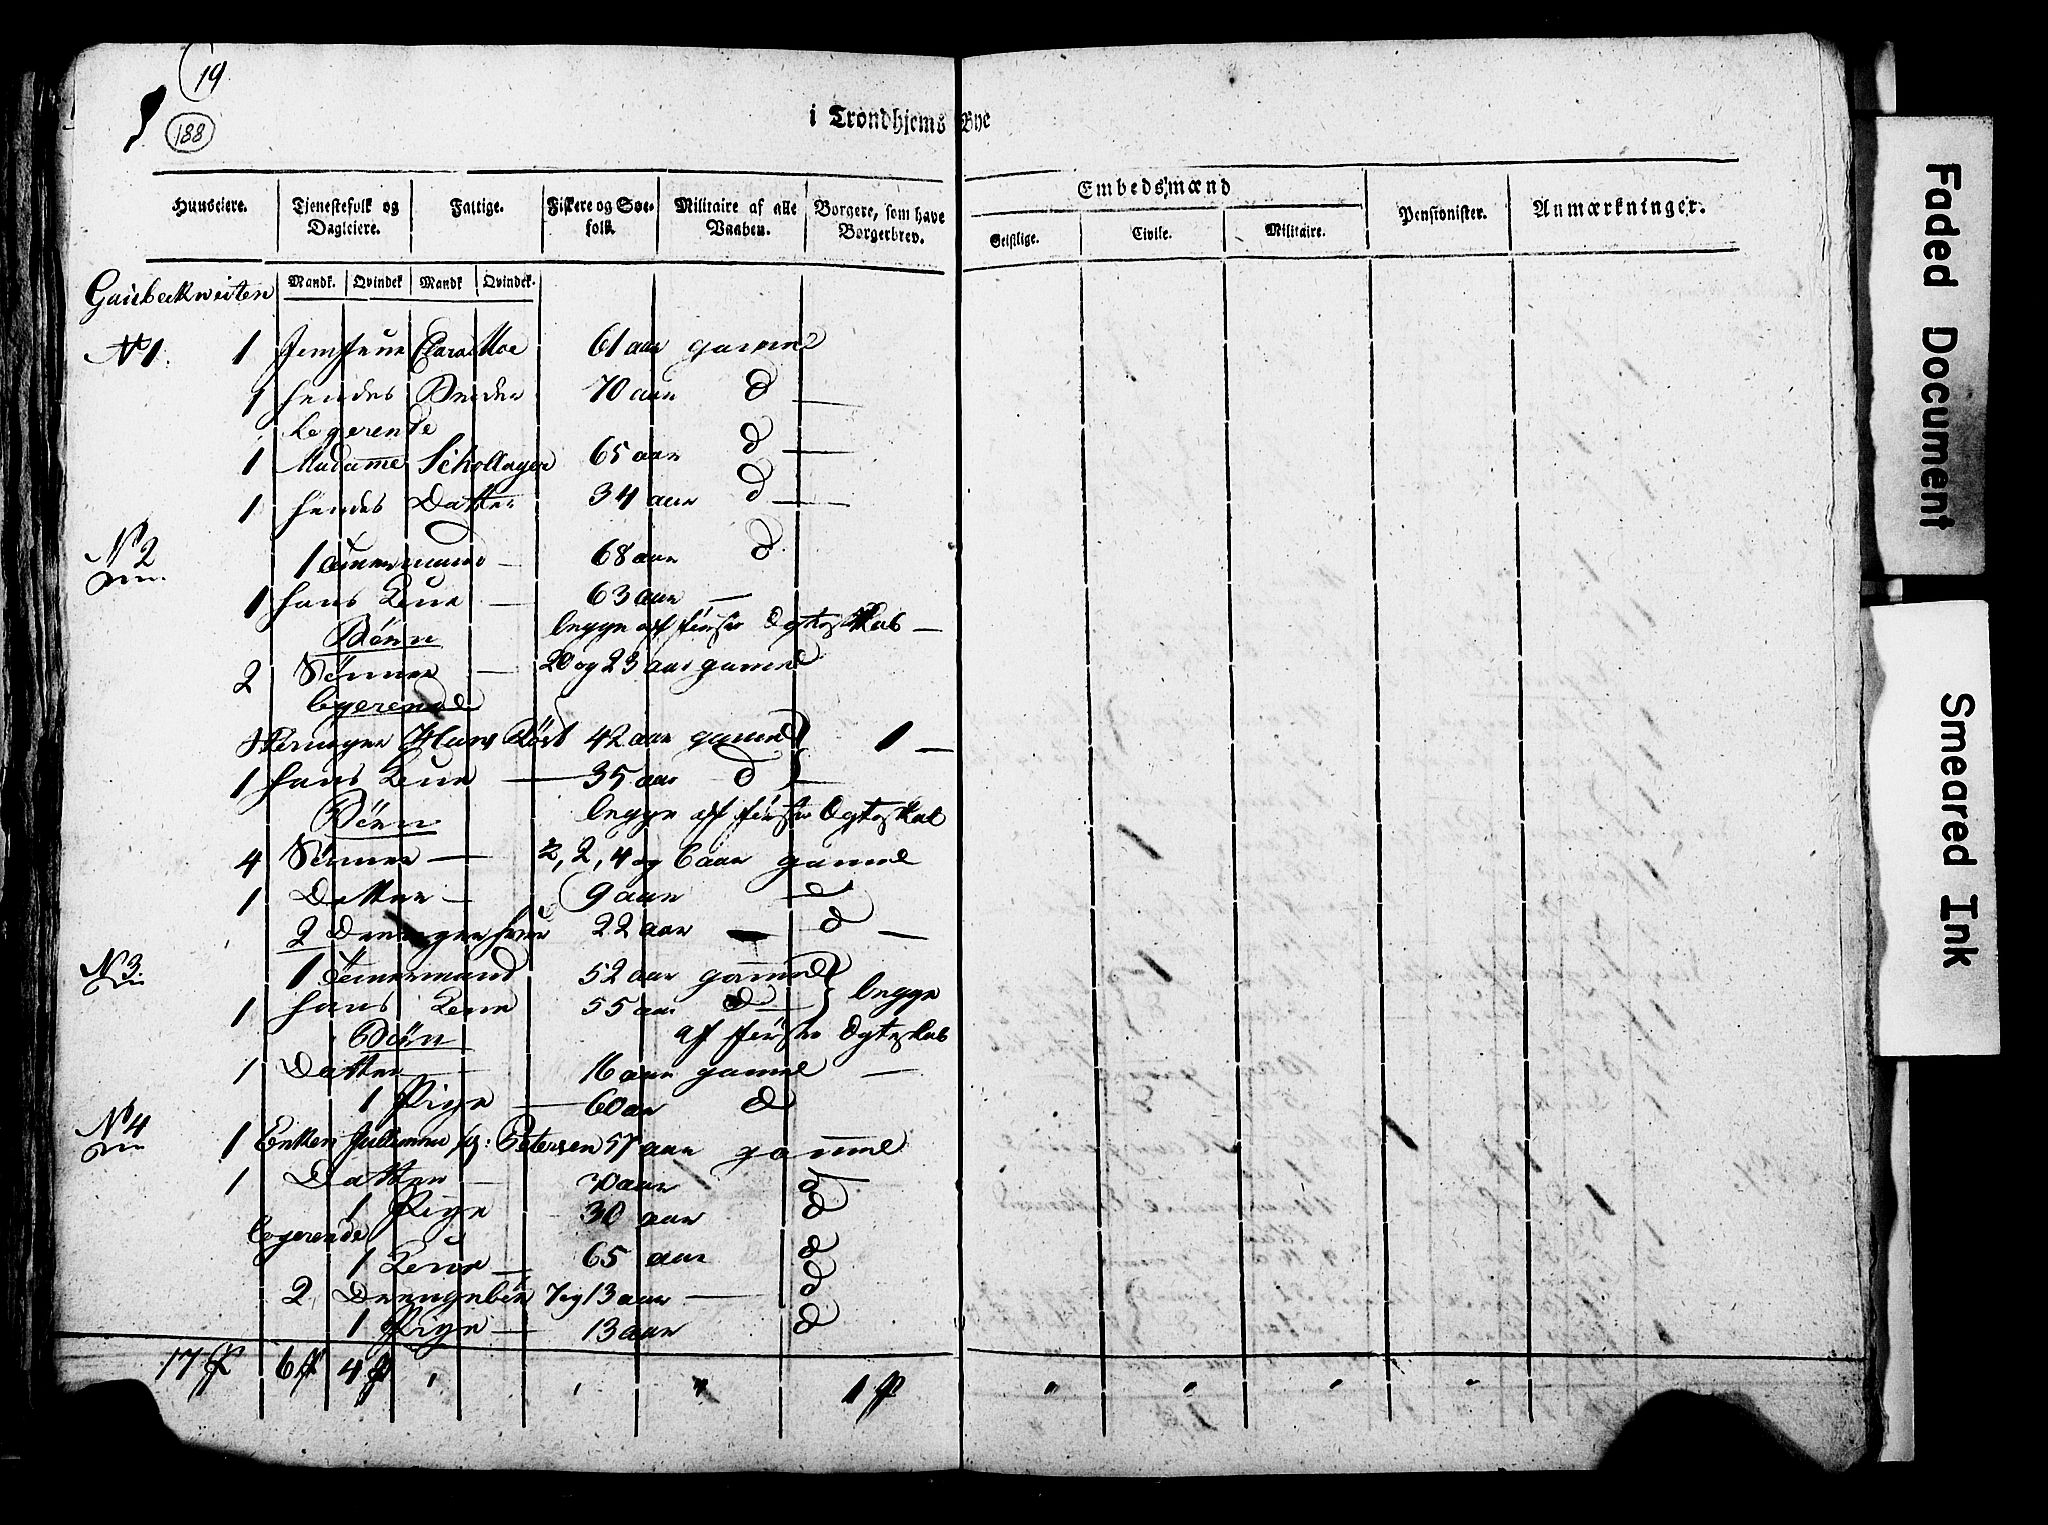 19
188
i Trondhjems Bye
Huuseiere. Tjenestefolk og Dagleiere. Fattige. Fiskere og Søefolk. Militaire af alle Vaaben. Borgere, som have Borgerbrev. Embedsmænd Pensionister. Anmærkninger.
Geistlige. Civile. Militaire.
Mandk. Qvindek Mandk Qvindek.
No 1. 1 Clara Moe 61 aar gamme
1 hendes 70 aar d
Logerende
1 Madamme 65 aar d
1 hendes Datter 34 aar d
No 2 1 Timermand 68 aar d
1 hans Kone 63 aar
Børn begge af første Egteskab
2 Sønner 20 og 23 aar gamme
logerende
Hans 42 aar gamme 1
1 hans Kone 35 aar d
Børn begge af første Egteskab
4 Sønner ½, 2, 4 og 6 aar gamme
1 Datter 9 aar d
2 22 aar d
No 3. 1 Temermand 52 aar gamme
1 hans Kone 55 aar d begge
Børn af første Egteskab
1 Datter 16 aar gamme
1 Pige 60 aar d
No 4 1 Enken Petersen 57 aar gamme
1 Datter 30 aar d
1 Pige 30 aar d
logerende
1 Kone 65 aar d
2 7 og 13 aar d
1 Pige 13 aar d
17 6 4 1
Faded Document
Smeared Ink